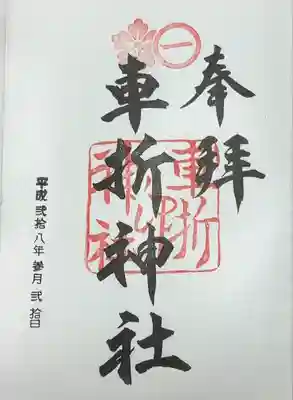 奉拝
一
車折神社
車折神社
平成弐拾八年参月弐拾日